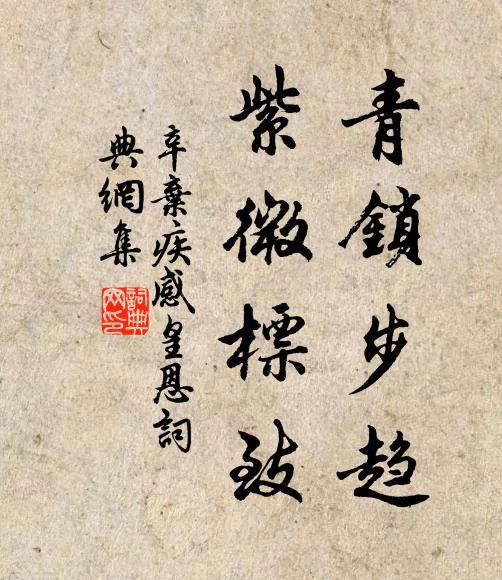 青鎖步趋
紫微標致
辛棄疾感皇恩詞
典網集
詞典網印